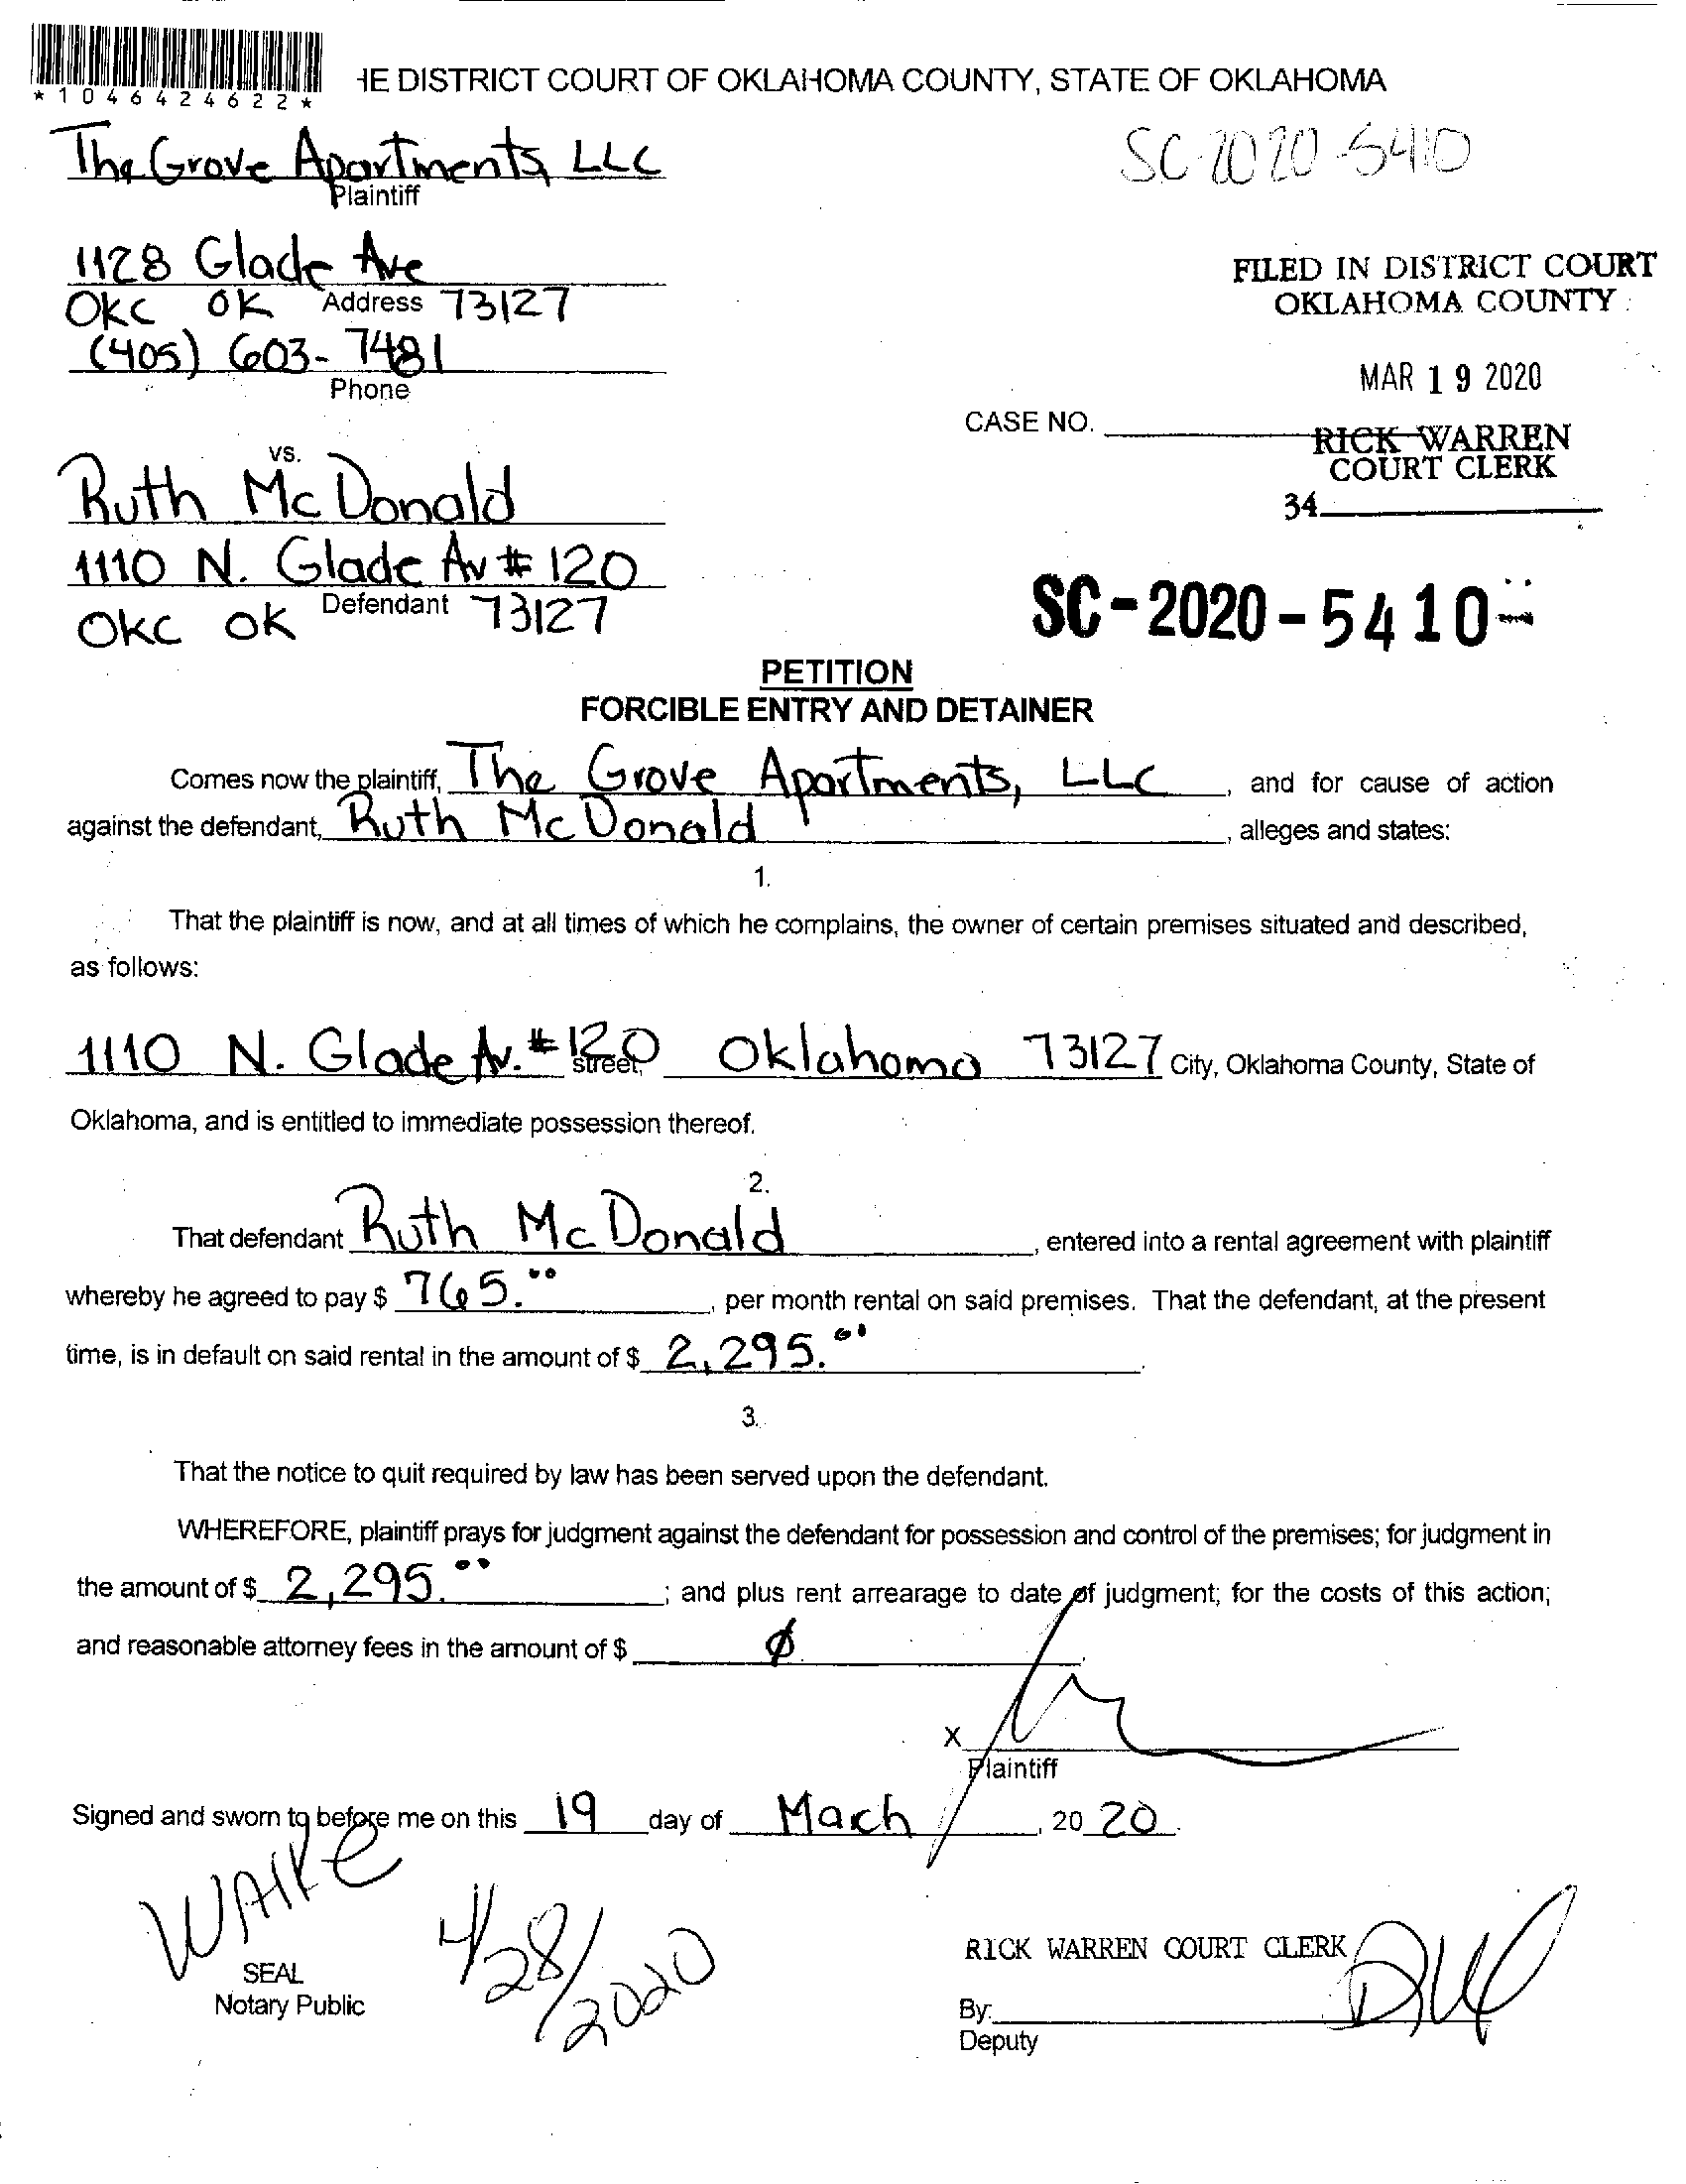 *1046424622*
HE DISTRICT COURT OF OKLAHOMA COUNTY, STATE OF OKLAHOMA
The Grove Apartments, LLC
Plaintiff
SC-2020-5410
1128 Glade Ave
Address
OKC OK 73127
(405) 603-7481
Phone
FILED IN DISTRICT COURT
OKLAHOMA COUNTY
MAR 19 2020
CASE NO.
RICK WARREN
COURT CLERK
34
vs.
Ruth McDonald
1110 N. Glade Av # 120
Defendant
OKC OK 73127
SC-2020-5410
PETITION
FORCIBLE ENTRY AND DETAINER
Comes now the plaintiff, The Grove Apartments, LLC, and for cause of action
against the defendant, Ruth McDonald, alleges and states:
1.
That the plaintiff is now, and at all times of which he complains, the owner of certain premises situated and described,
as follows:
1110 N. Glade Av. #120 street, Oklahoma 73127 City, Oklahoma County, State of
Oklahoma, and is entitled to immediate possession thereof.
2.
That defendant Ruth McDonald, entered into a rental agreement with plaintiff
whereby he agreed to pay $ 765.00, per month rental on said premises. That the defendant, at the present
time, is in default on said rental in the amount of $ 2,295.00.
3.
That the notice to quit required by law has been served upon the defendant.
WHEREFORE, plaintiff prays for judgment against the defendant for possession and control of the premises; for judgment in
the amount of $ 2,295.00; and plus rent arrearage to date of judgment; for the costs of this action;
and reasonable attorney fees in the amount of $ Ø.
X
Plaintiff
Signed and sworn to before me on this 19 day of Mach, 2020.
4/28/2020
SEAL
Notary Public
RICK WARREN COURT CLERK
By:
Deputy